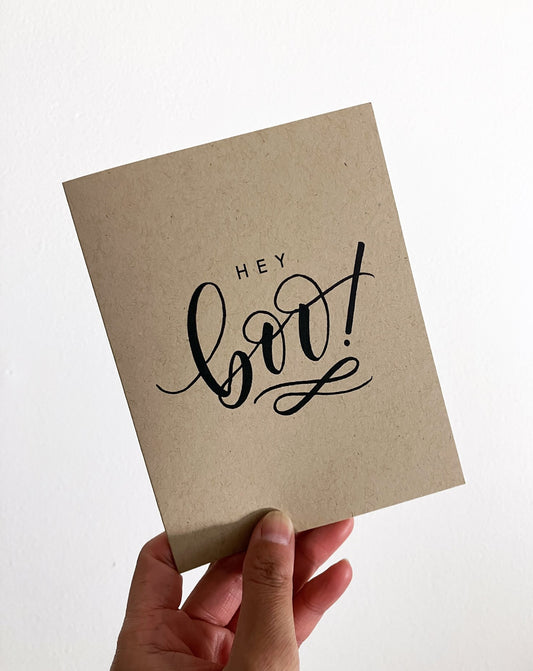 HEY
boo!